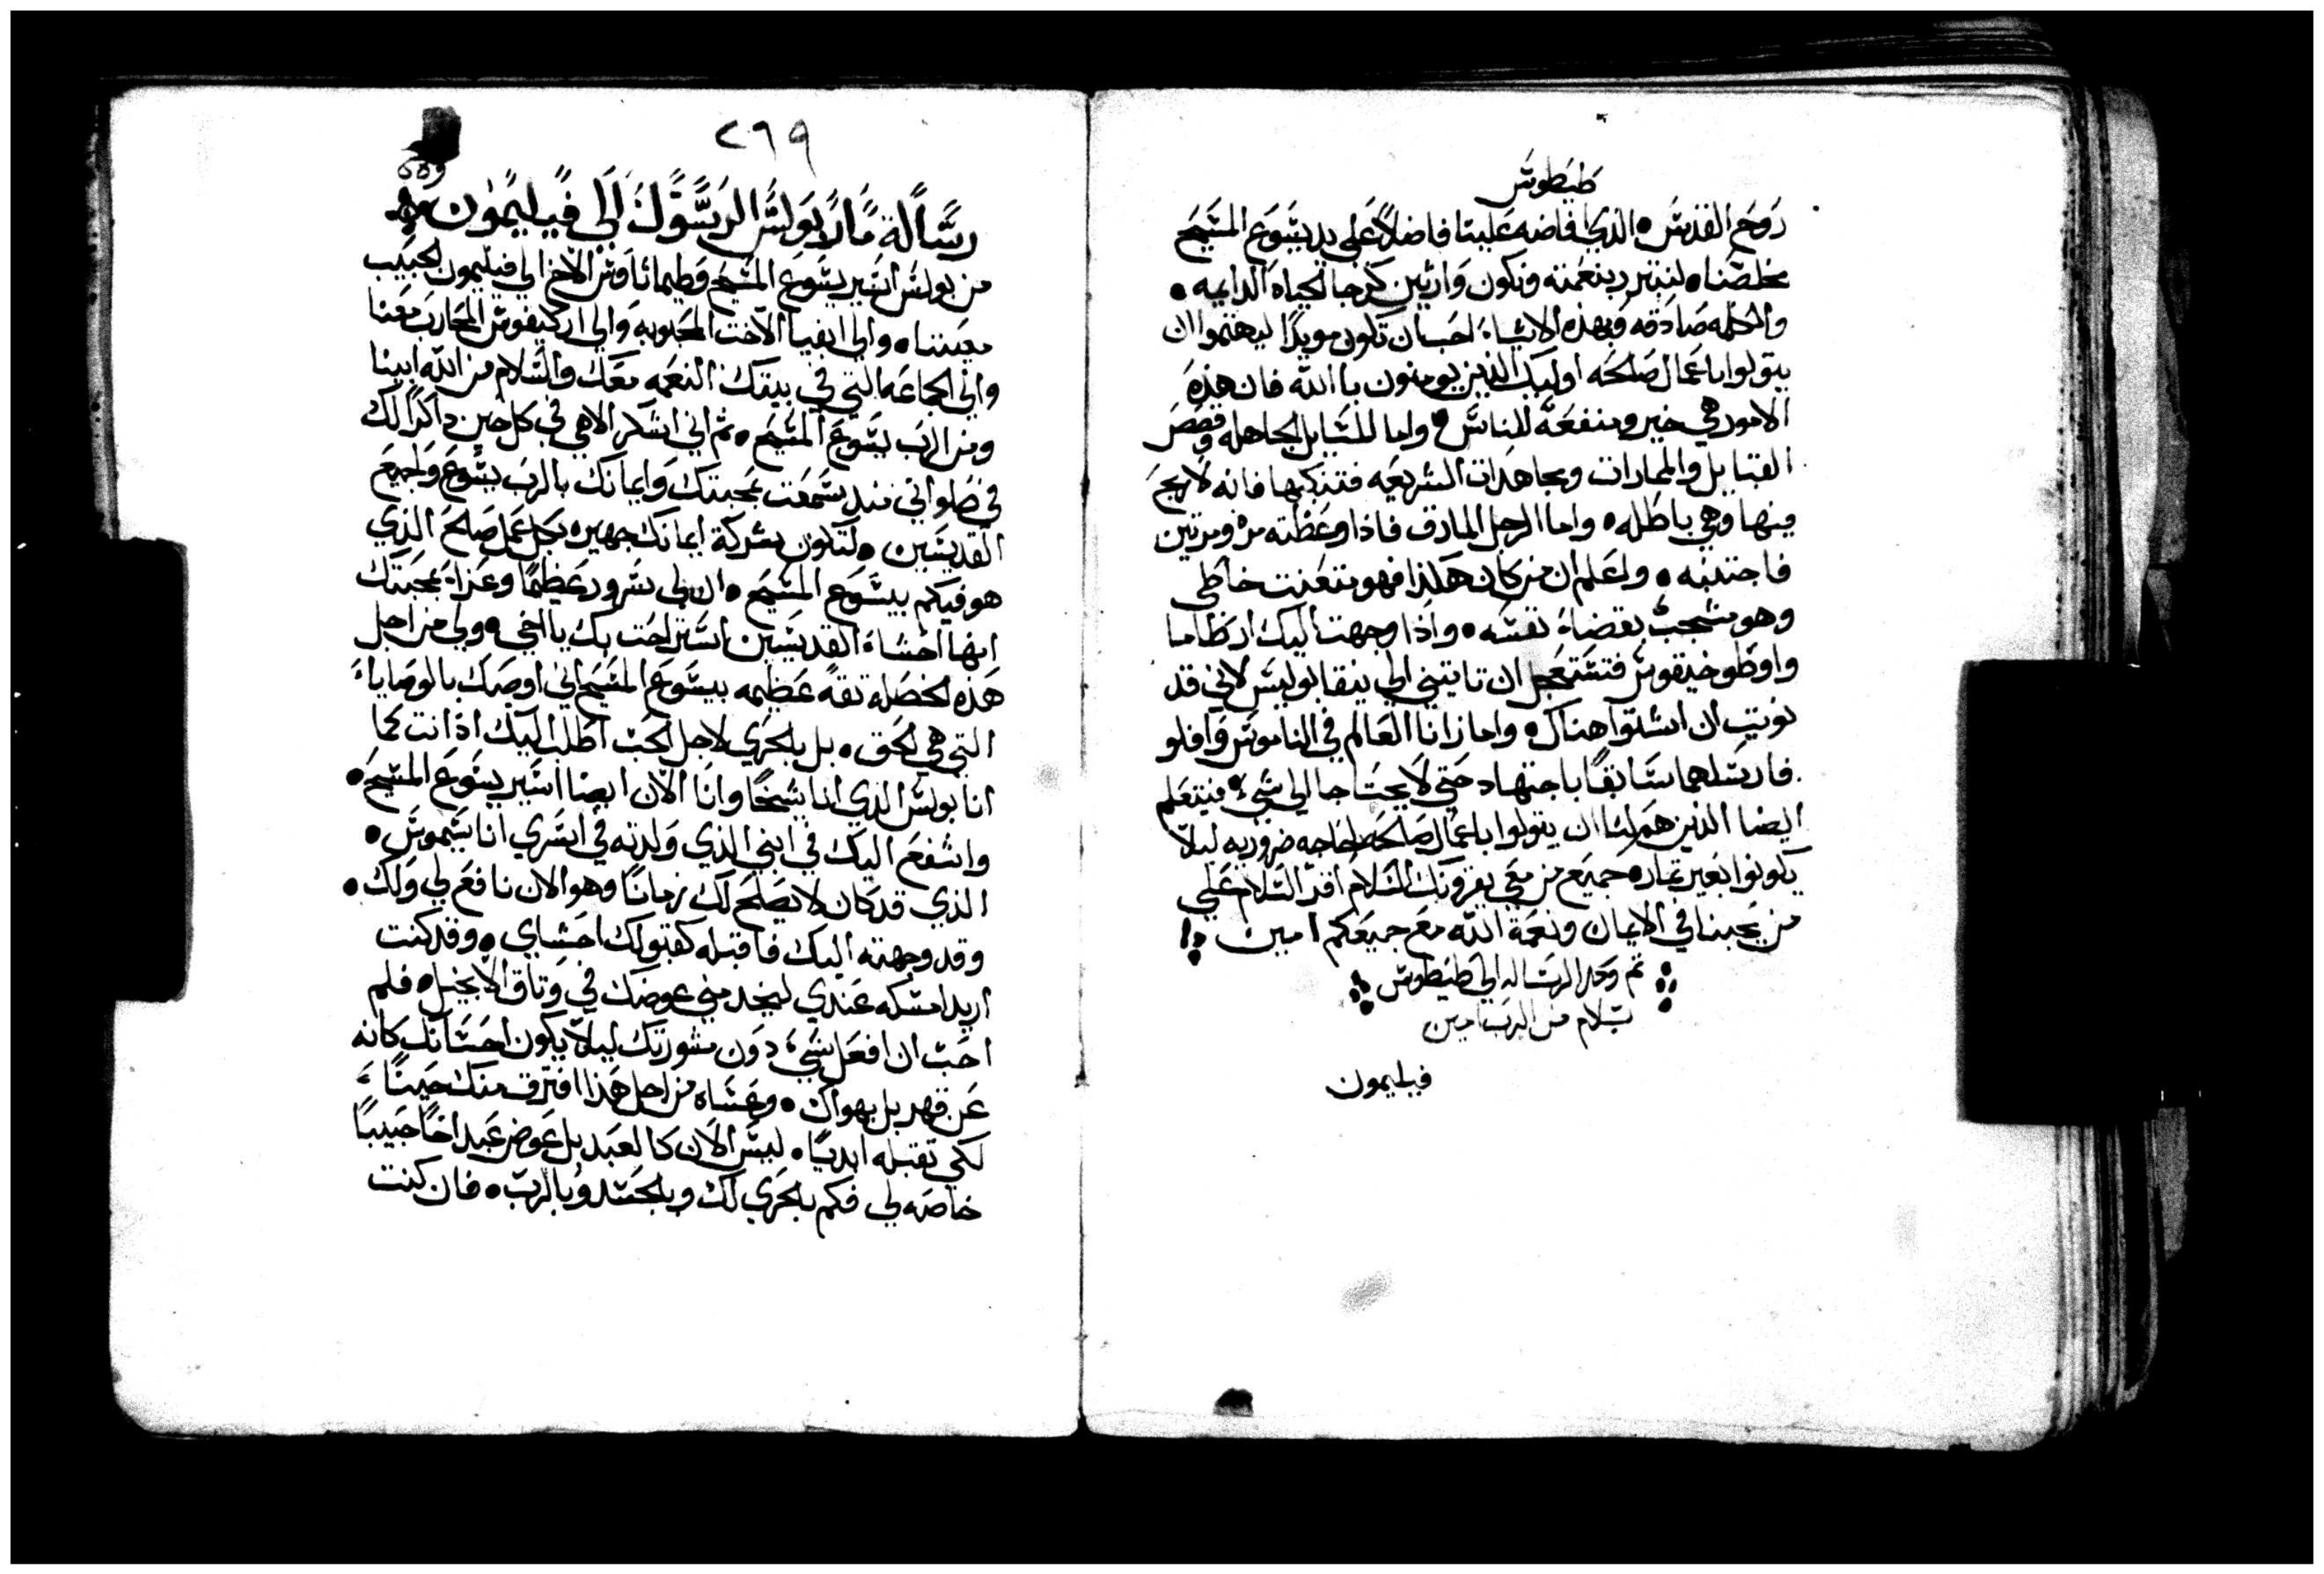 طيطوس
روح القدس الذي افاضه علينا فاضلاً على يد يسوع المسيح
مخلصنا لنتبرر بنعمته ونكون وارثين كرجا الحياه الدايمه
والكلمه صادقه وبهذه الاشياء احب ان تكون مويدًا ليهتموا ان
يتولوا باعمال صالحه اوليك الذين يومنون باالله فان هذه
الامور هي خير ومنفعه للناس واما المسايل الجاهله وقصص
القبايل والممارات ومجاهدات الشريعه فتنكبها فانه لا ربح
منها وهي باطله واما الرجل المارق فاذا وعظته مره ومرتين
فاجتنبه ولعلم ان من كان هكذا فهو متعنت خاطي
وهو مشجب بقضاء نفسه واذا وجهت اليك ارطاما
واوطوخيقوس فتستعجل ان تاتيني الي نيقابوليس لاني قد
نويت ان اشتوا هناك واما زانا العالم في الناموس وافلو
فارسلهما سابقًا باجتهاد حتي لا يحتاجا الي شيء فليتعلم
ايضا الذين هم لنا ان يتولوا باعمال صالحه لحاجه ضروريه ليلا
يكونوا بغير ثماره جميع من معي يقرونك السلام اقر السلام علي
من يحبنا في الايمان ونعمة الله مع جميعكم امين
تم وكمل الرساله الي طيطوس
بسلام من الرب امين
فيليمون
٢٦٩
رسالة مار بولس الرسول الي فيليمون
من بولس اسير يسوع المسيح وطيماثاوس الاخ الي فيليمون الحبيب
معيننا والي ابفيا الاخت المحبوبه والي اركيفوس المحارب معنا
والي الجماعه التي في بيتك النعمه معك والسلام من الله ابينا
ومن الرب يسوع المسيح ثم اني اشكر الاهي في كل حين ذاكرًا لك
في صلواتي منذ سمعت بمحبتك وايمانك بالرب يسوع ولجميع
القديسين لتكون شركة ايمانك جهيره بكل عمل صالح الذي
هو فيكم بيسوع المسيح ان لي سرور عظيمًا وعزاء بمحبتك
انها احشاء القديسين استراحت بك يا اخي ولي من اجل
هذه الخصله ثقة عظيمه بيسوع المسيح اني اوصيك بالوصايا
التي هي لحق بل بالحري لاجل الحب اطلب اليك اذ انت كما
انا بولس الذي انا شيخًا وانا الان ايضا اسير يسوع المسيح
واشفع اليك في ابني الذي ولدته في اسري اناسيموس
الذي قد كان لا يصلح لك زمانًا وهو الان نافع لي ولك
وقد وجهته اليك فاقبله كقبولك احشاي وقد كنت
اريد امسكه عندي ليخدمني عوضك في وثاق الانجيل فلم
احب ان افعل شيء دون مشورتك ليلا يكون احسانك كانه
عن قهر بل بهواك وعساه من اجل هذا افترق منك حينًا
لكي تقبله ابديًا ليس الان كالعبد بل عوض عبد اخًا حبيبًا
خاصه لي فكم بالحري لك وبالجسد وبالرب فان كنت